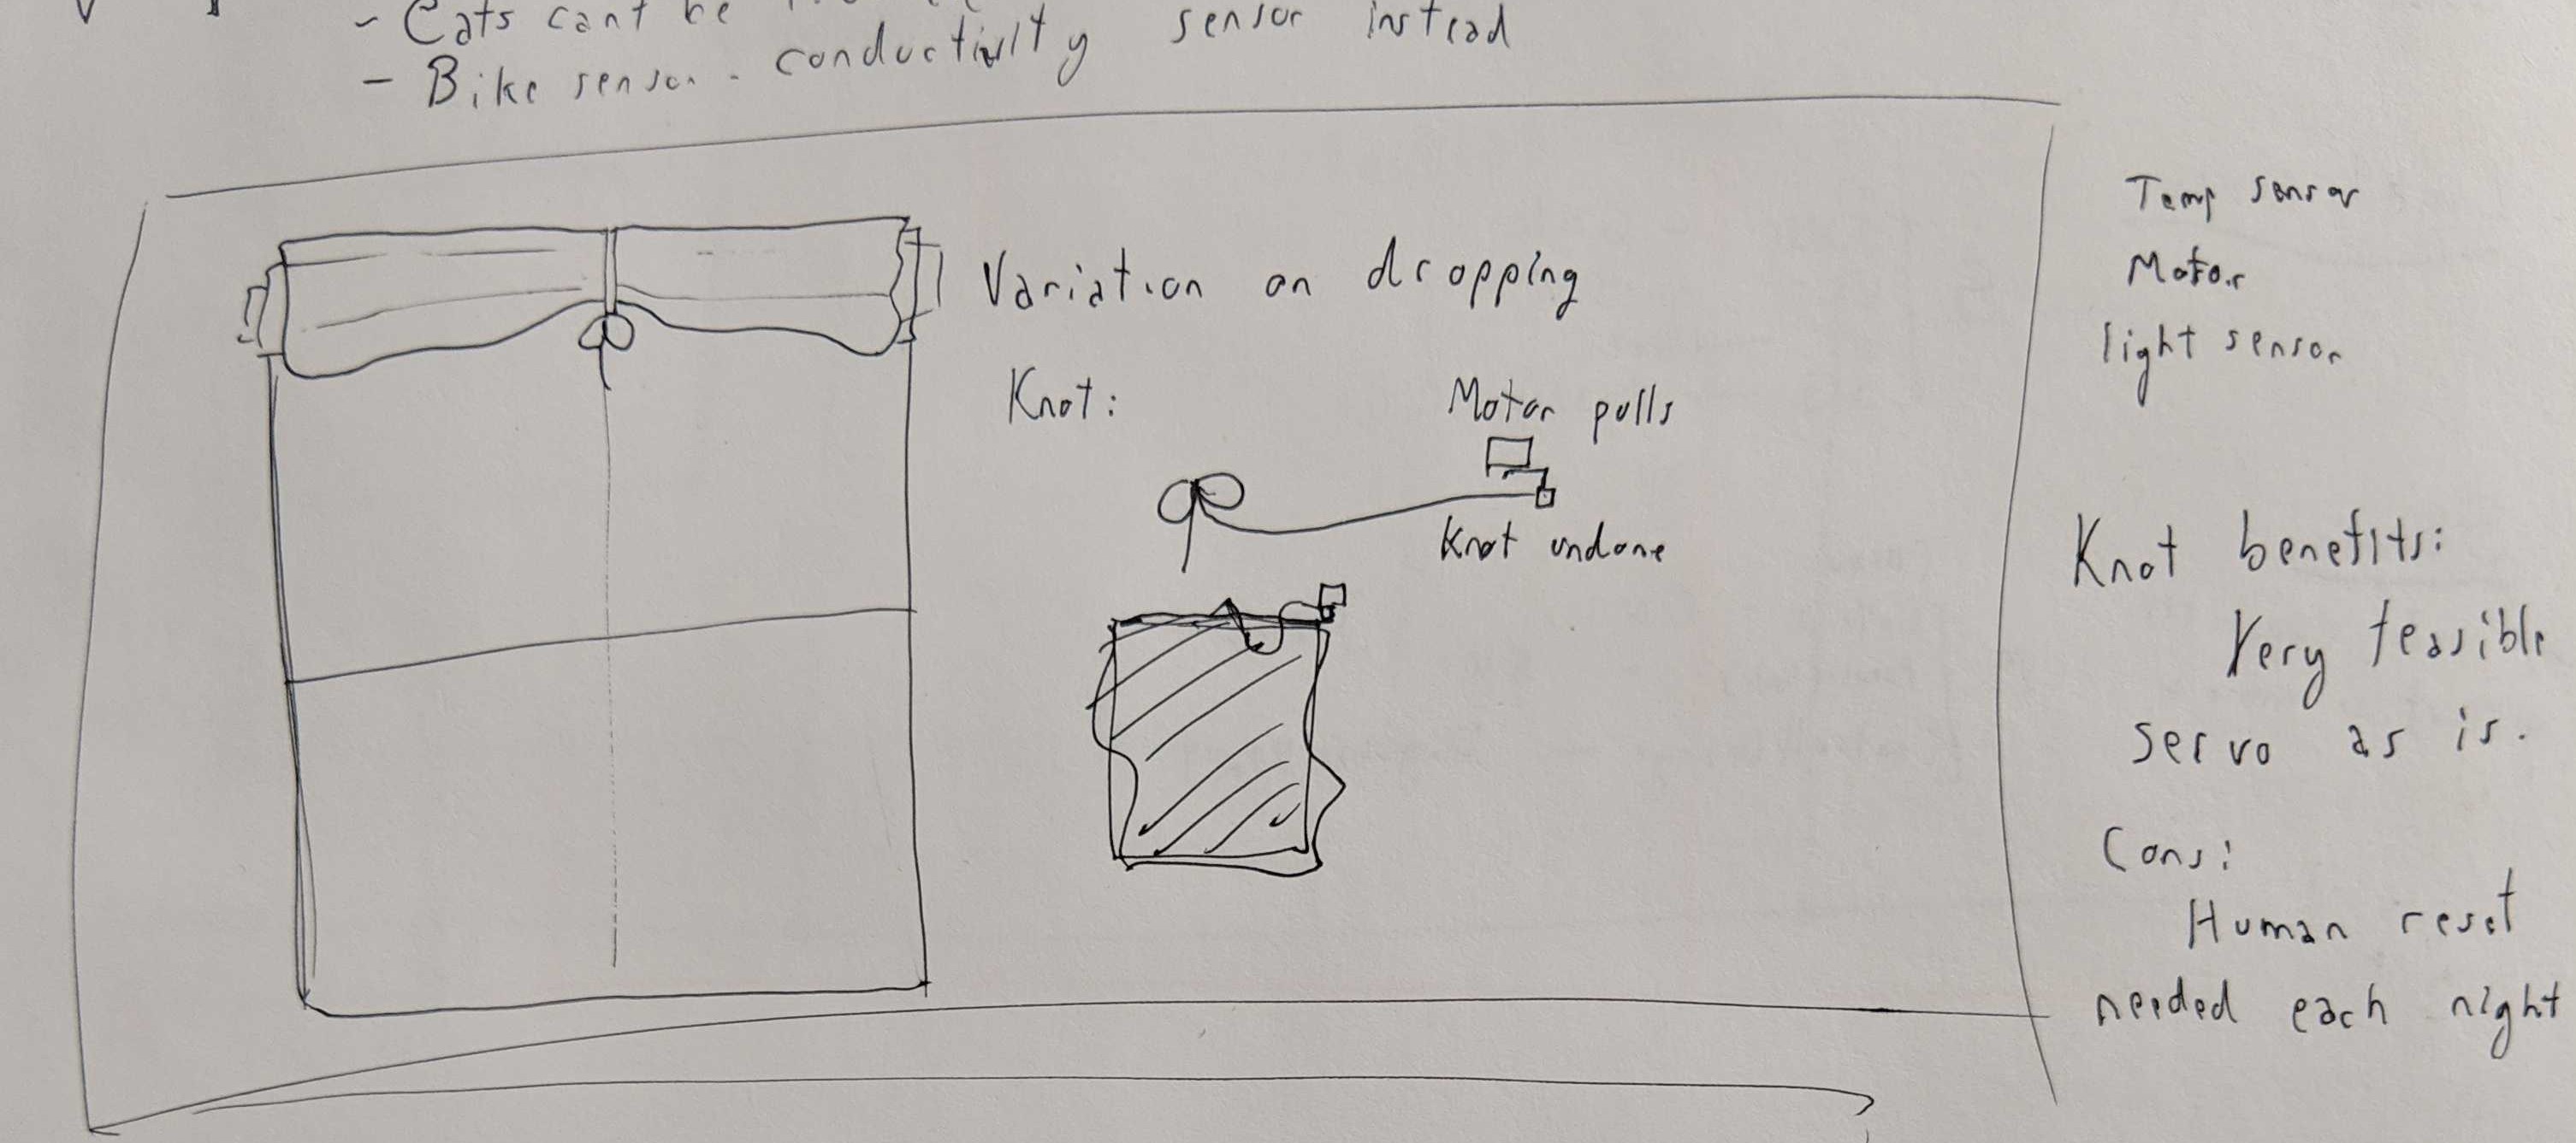 - Cats cant be
- Bike sensor - conductivity sensor instead
Variation on dropping
Knot:
Motor pulls
Knot undone
Temp sensor
Motor
light sensor
Knot benefits:
Very feasible
servo as is.
Cons:
Human reset
needed each night